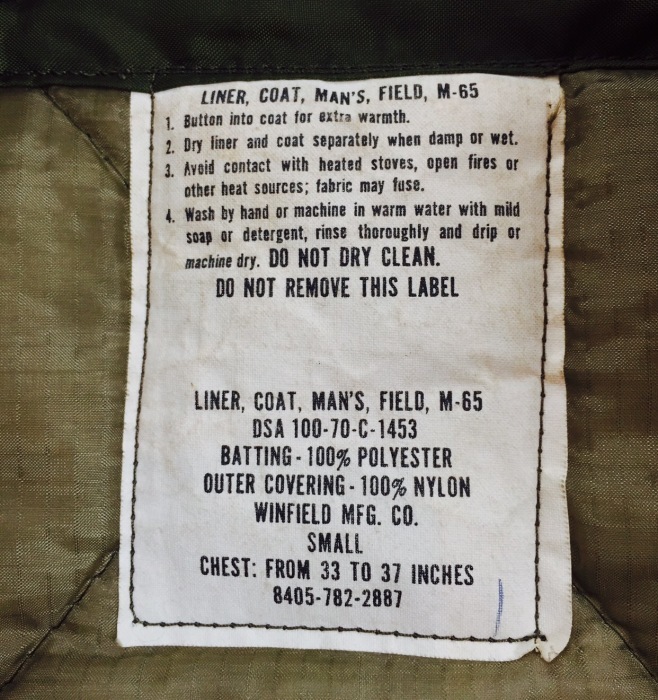 LINER, COAT, MAN'S, FIELD, M-65
1. Button into coat for extra warmth.
2. Dry liner and coat separately when damp or wet.
3. Avoid contact with heated stoves, open fires or
other heat sources; fabric may fuse.
4. Wash by hand or machine in warm water with mild
soap or detergent, rinse thoroughly and drip or
machine dry. DO NOT DRY CLEAN.
DO NOT REMOVE THIS LABEL
LINER, COAT, MAN'S, FIELD, M-65
DSA 100-70-C-1453
BATTING - 100% POLYESTER
OUTER COVERING - 100% NYLON
WINFIELD MFG. CO.
SMALL
CHEST: FROM 33 TO 37 INCHES
8405-782-2887